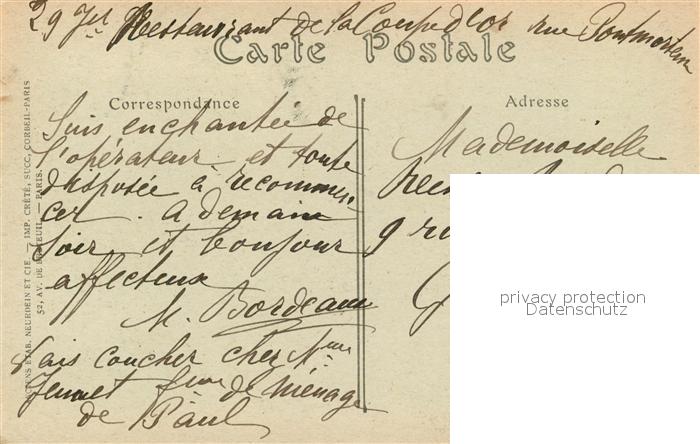 29 Jet Restaurant de la Coupe d'or rue Pontmartin
Carte Postale
Correspondance
Adresse
Suis enchantée de
l'opérateur et toute
disposée à recommen
cer . A demain
soir et bonjour
affectueux
M. Bordeaux
Vais coucher chez Mme
Jeunet fme de ménage
de Paul
Mademoiselle
9 ru
privacy protection
Datenschutz
ANCIENS ETAB. NEURDEIN ET CIE. — IMP. CRÉTÉ, SUCC. CORBEIL-PARIS
52, AV. DE BRETEUIL. — PARIS.